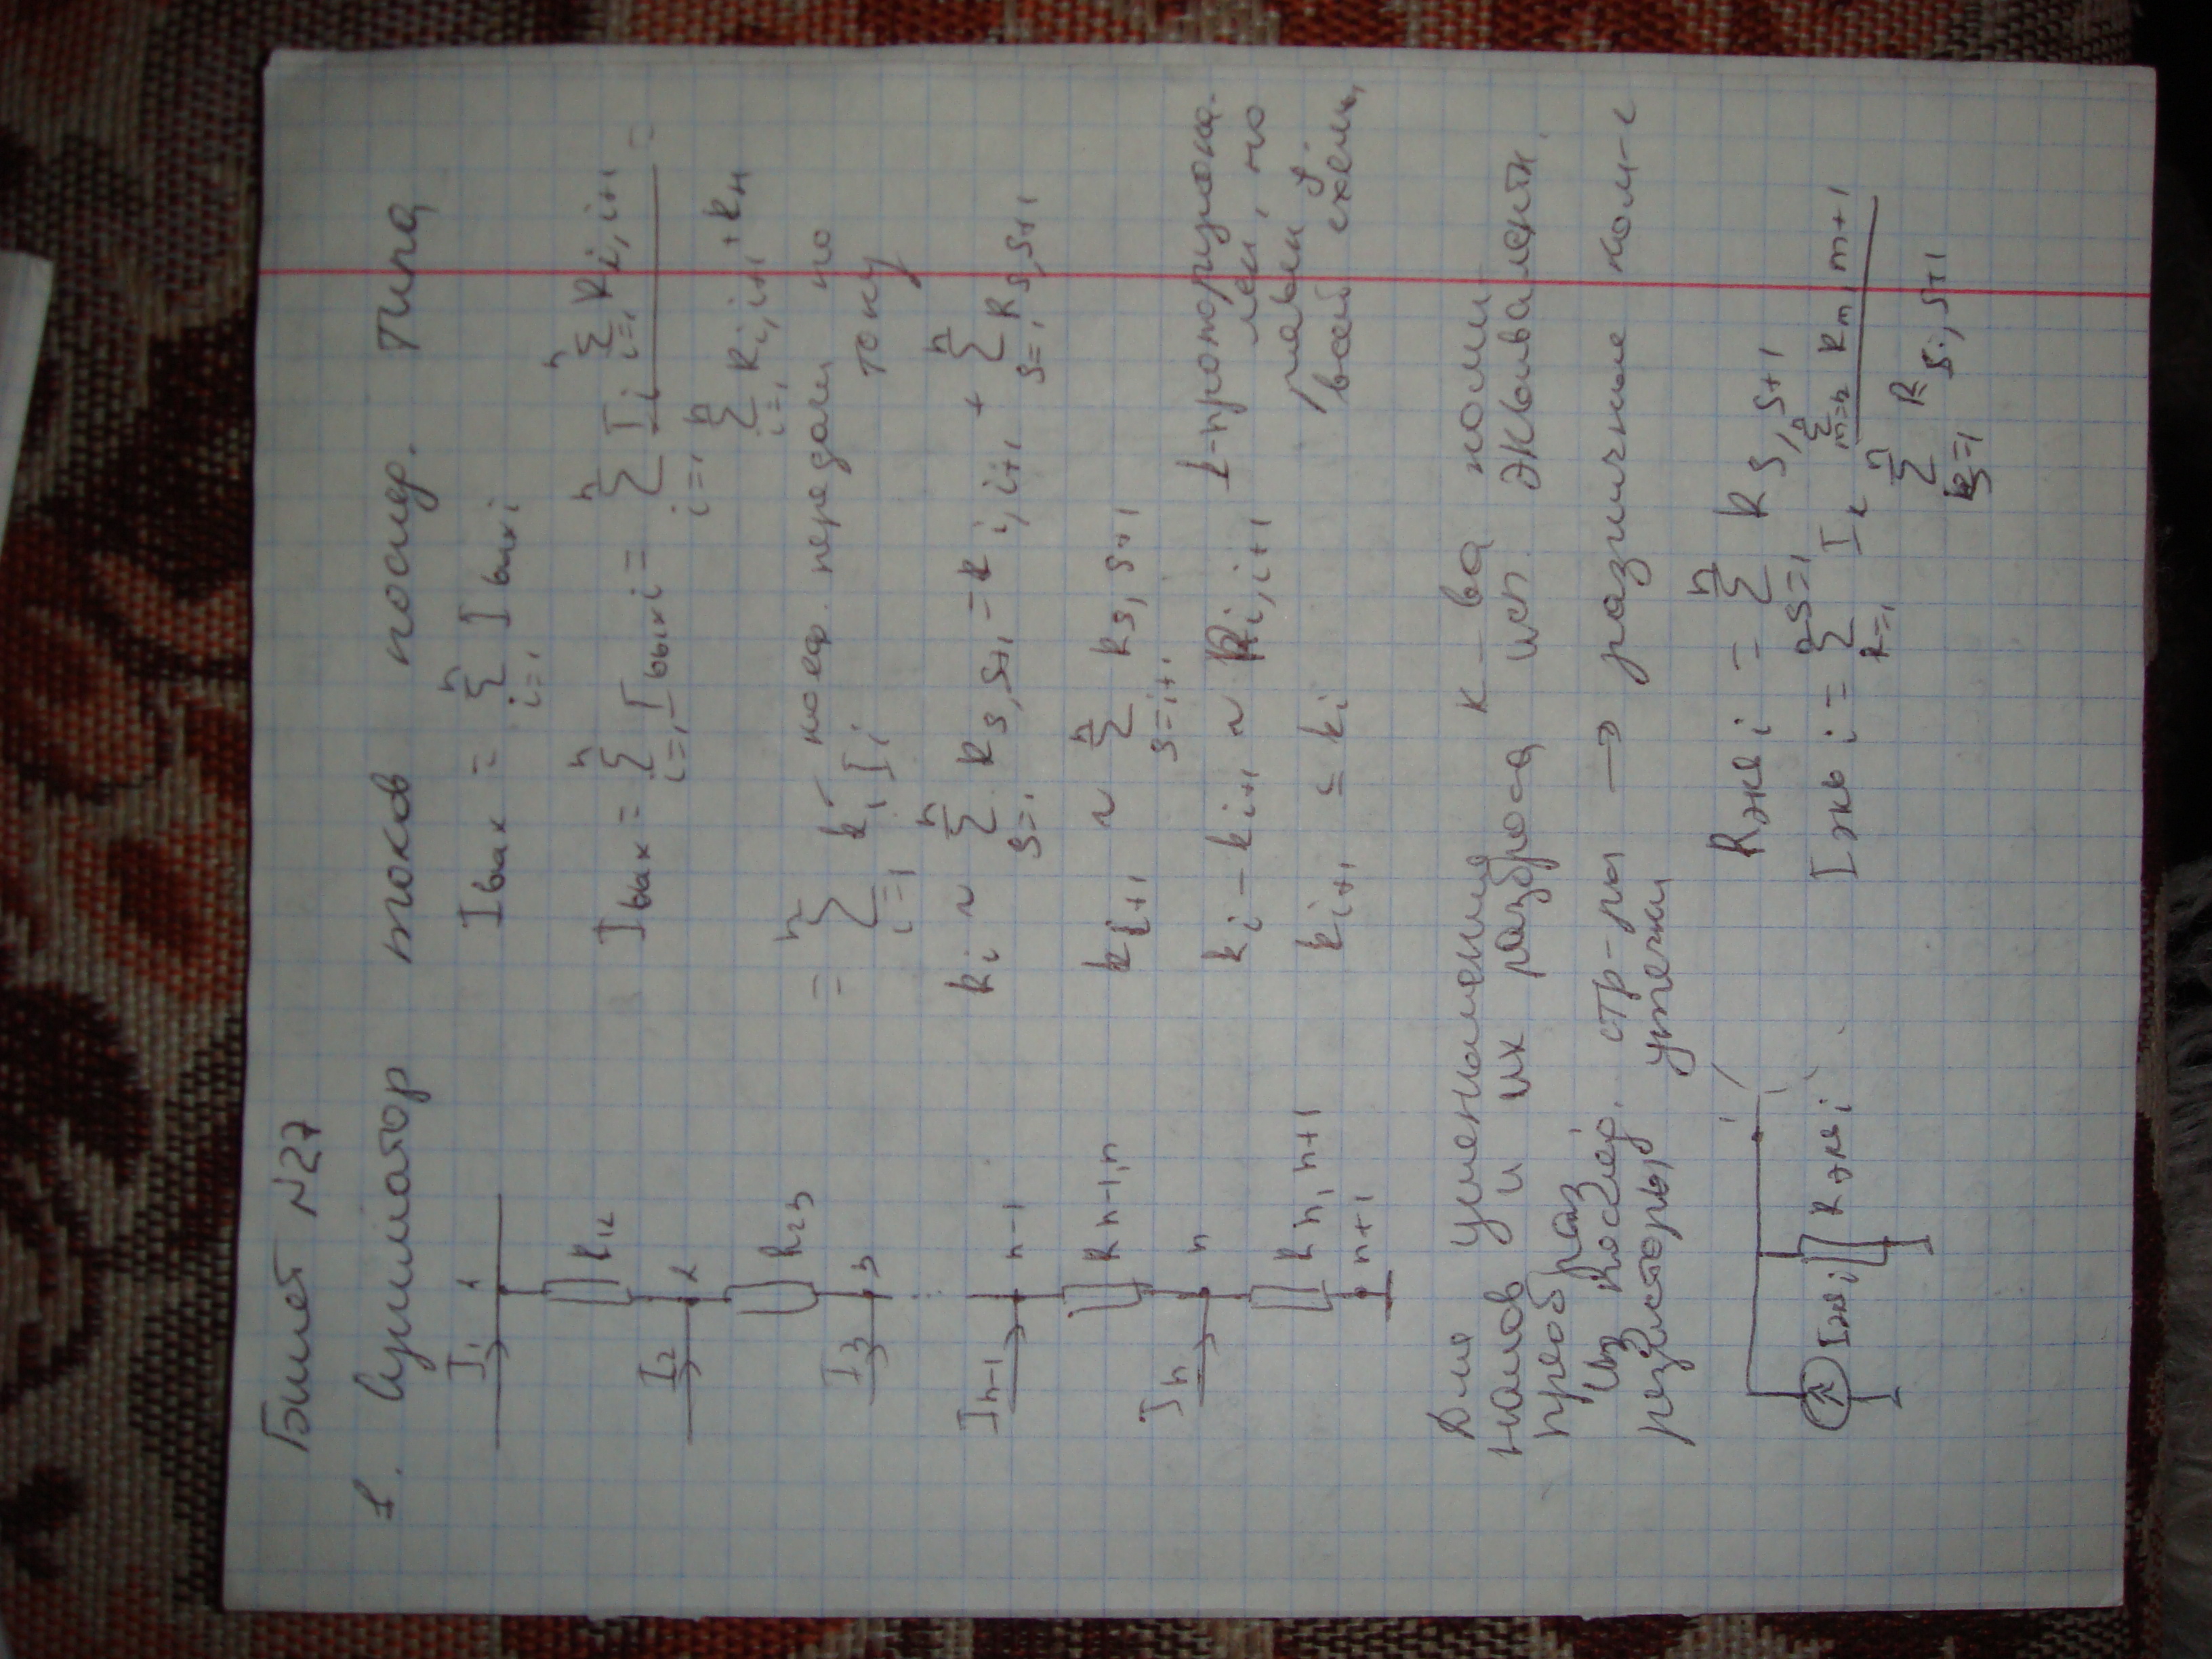 Билет №27
1. Сумматор токов послед. типа
I₁ 1
R₁₂
I₂ 2
R₂₃
I₃ 3
Iₙ₋₁ n-1
Rₙ₋₁,ₙ
Iₙ n
Rₙ,ₙ₊₁
n+1
Iвых = Σ(i=1..n) Iвых i
Iвых = Σ(i=1..n) Iвых i = Σ(i=1..n) Iᵢ Σ(i=1..n) Rᵢ,ᵢ₊₁ / (Σ(i=1..n) Rᵢ,ᵢ₊₁ + Rн) =
= Σ(i=1..n) kᵢ Iᵢ - коэф. передачи по току
kᵢ ~ Σ(s=i..n) Rs,s+1 = Rᵢ,ᵢ₊₁ + Σ(s=i..n) Rs,s+1
kᵢ₊₁ ~ Σ(s=i+1..n) Rs,s+1
kᵢ - kᵢ₊₁ ~ Rᵢ,ᵢ₊₁
kᵢ₊₁ ≤ kᵢ
Для уменьшения к-ва номи-
налов и их разброса исп. эквивалентн.
преобраз
Из послед. стр-ры → различные ком-е
резисторы утечки
Iэкв i
Rэкв i
Rэкв i = Σ(s=1..n) Rs,s+1
Iэкв i = Σ(k=1..n) Iₖ Σ(m=k..n) Rm,m+1 / Σ(s=1..n) Rs,s+1